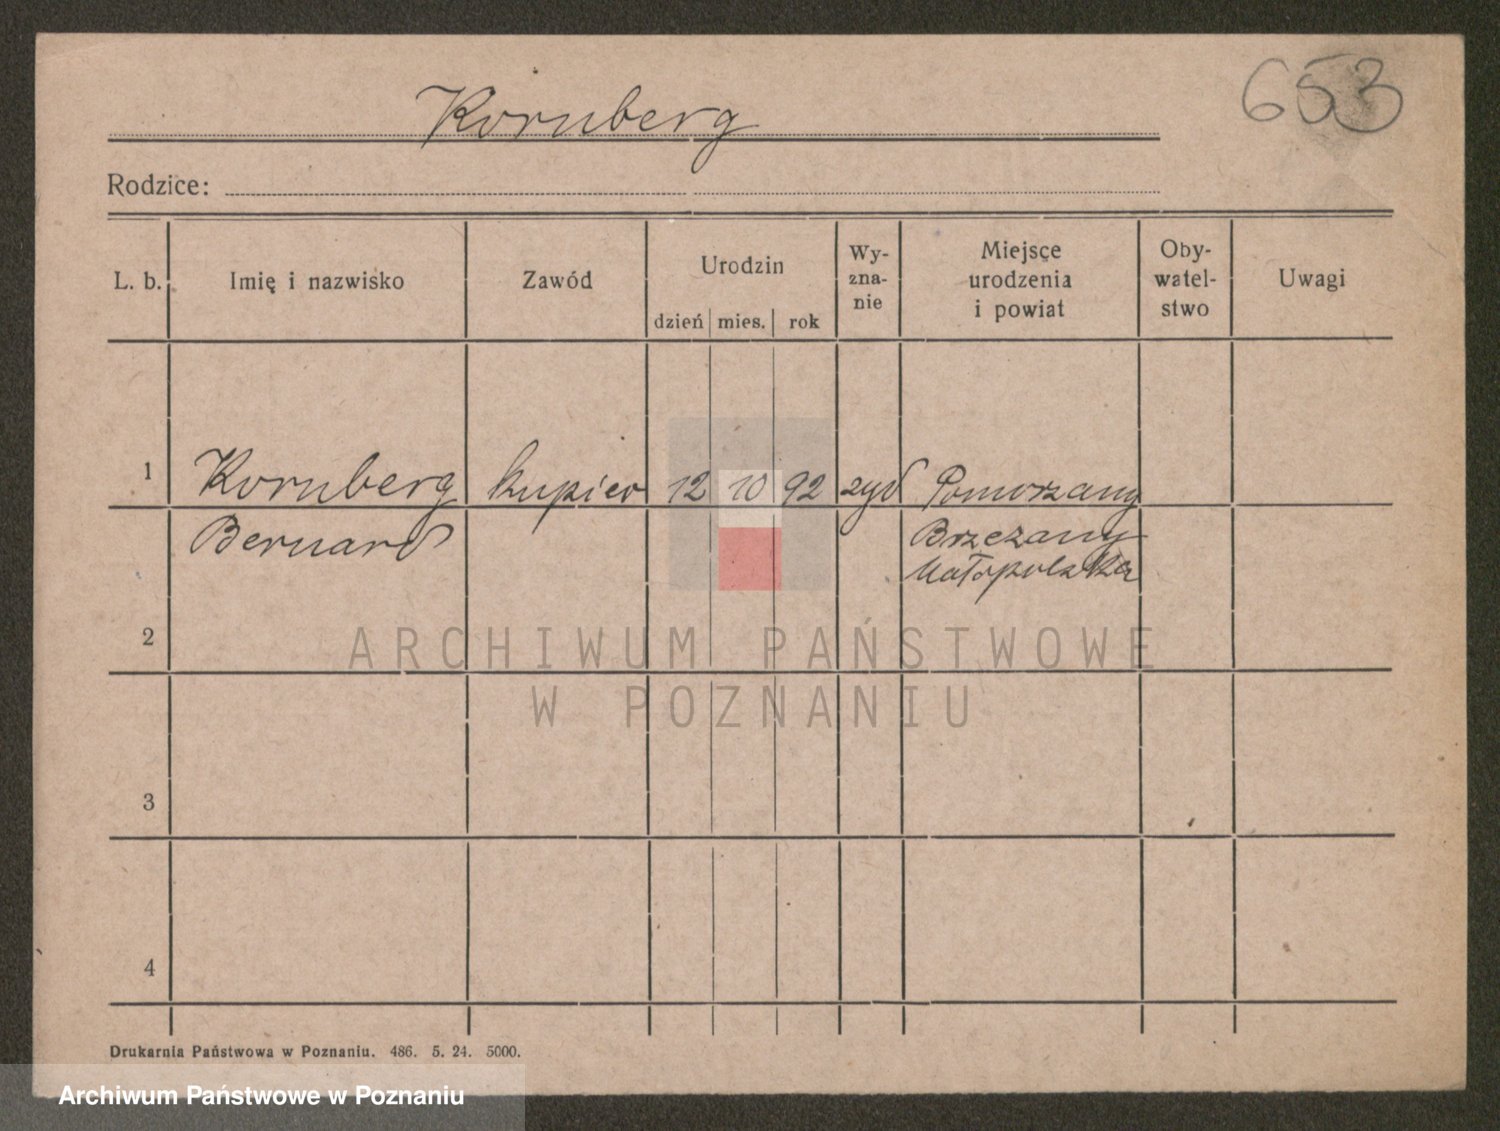 Kornberg
653
Rodzice:
L. b. Imię i nazwisko Zawód Urodzin dzień mies. rok Wy-zna-nie Miejsce urodzenia i powiat Oby-watel-stwo Uwagi
1 Kornberg kupiec 12 10 92 żyd Pomorzany
Bernard Brzeżany
Małopolska
2
ARCHIWUM PAŃSTWOWE
W POZNANIU
3
4
Drukarnia Państwowa w Poznaniu. 486. 5. 24. 5000.
Archiwum Państwowe w Poznaniu